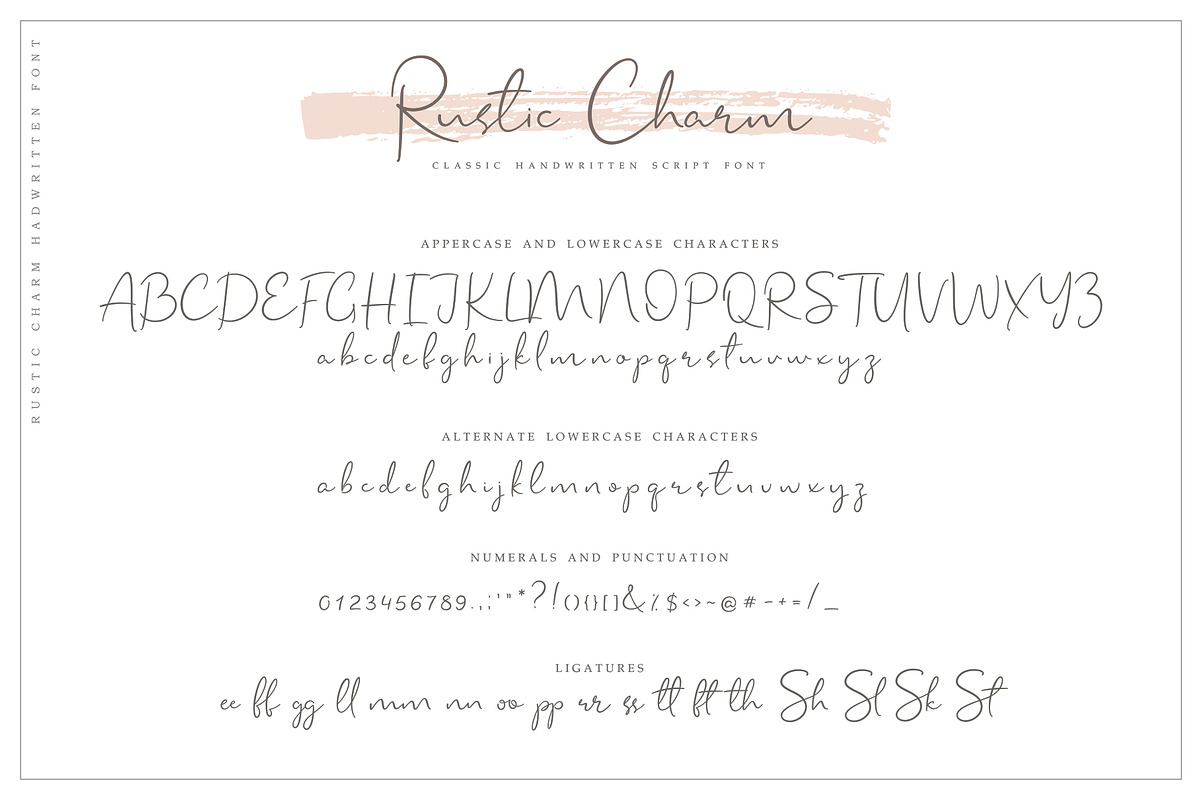 Rustic Charm
CLASSIC HANDWRITTEN SCRIPT FONT
RUSTIC CHARM HADWRITTEN FONT
APPERCASE AND LOWERCASE CHARACTERS
ABCDEFGHIJKLMNOPQRSTUVWXYZ
abcdefghijklmnopqrstuvwxyz
ALTERNATE LOWERCASE CHARACTERS
abcdefghijklmnopqrstuvwxyz
NUMERALS AND PUNCTUATION
0123456789.,:;'"*?!(){}[]&%$<>~@#-+=/_
LIGATURES
ee ff gg ll mm nn oo pp rr ss tt ft th Sh Sl Sk St